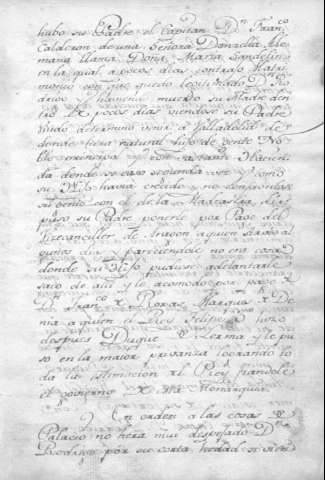 hubo su Padre el Capitan Dn Franco
Calderon de una Señora Donzella Ale
mana llama Doña Maria Sandelin
en la qual a pocos dias contrajo Matri
monio con que quedo lexitimado Dn Ro
drigo y haviendo muerto su Madre den
tro de pocos dias viendose su Padre
viudo determino venir a Valladolid de
donde hera natural hijo de gente No
ble principal y con bastante Hacien
da donde se caso segunda vez y como
su Hijo havia crecido y no
su genio con el de la Madrastra, dis
puso su Padre ponerle por Page del
Vicecanciller de Aragon a quien
gunos dias y pareciendole no era cosa
donde su Hijo pudiese adelantarse
saco de alli y le acomodo por page de
Dn Franco de Rojas Marques de De
nia a quien el Rey Felipe 3 hizo
despues Duque de Lerma y le pu
so en la maior privanza logrando to
da la estimacion del Rey fiandole
el govierno de su Monarquia
En orden a las cosas de
Palacio no hera mui despejado Dn
Rodrigo por su corta hedad